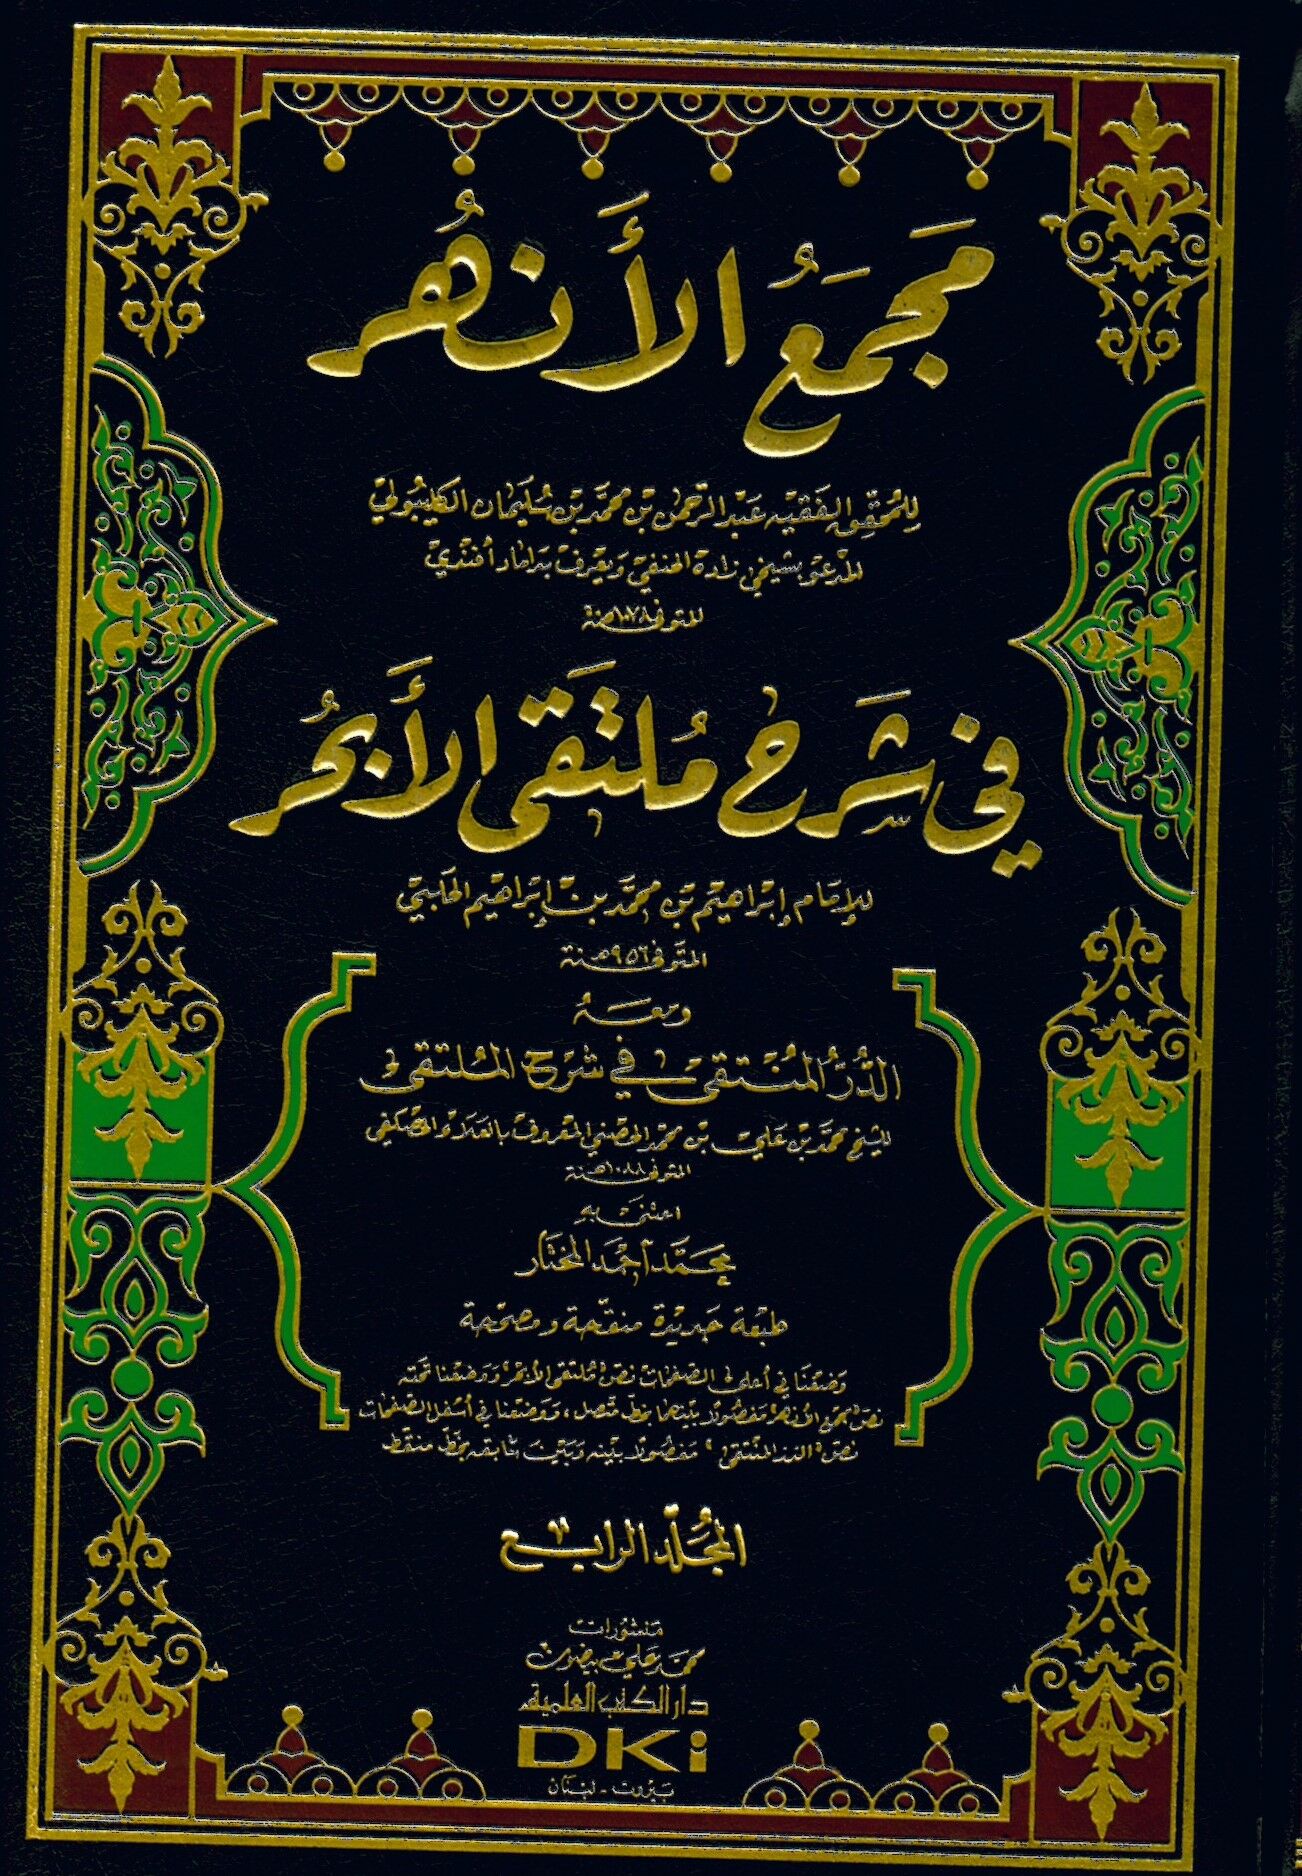 مَجمَعُ الأَنهُر
للمُحقّق الفَقيه عَبْد الرّحمٰن بن محمَّد بْن سُليمَان الكليبُولي
المدعو بشيخي زاده الحنفي ويعرف بداماد أفندي
المتوفى ١٠٧٨هـ سنة
في شَرح مُلتَقى الأَبحُر
للإمَام إبْراهيْم بن محَمَّد بن إبْراهيم الحلَبيّ
المتوَفى ٩٥٦هـ سنة
ومَعَهُ
الدُّرُّ المُنْتَقىٰ في شَرح المُلتقى
للشيخ محمَّد بْن عَلي بن محمد الحصْني المعروف بالعَلاء الحصْكفي
المتوفى ١٠٨٨هـ سنة
اعتنىٰ بهِ
محَمَّد أحمَد المختَار
طبعة جَديْدة منقّحة ومصَحّحة
وَضعْنَا في أعلى الصّفحَات نصّ "مُلتقى الأبحُر" وَوضعْنا تحته
نصّ "مجمع الأنهُر" مَفصُولاً بيْنهمَا بخطّ متّصل، وَوضَعنا في أسْفل الصّفحَات
نصّ "الدر المنْتقى" مَفصُولاً بيْنه وَبَين سَابقه بخطّ منقّط
المُجَلّد الرابع
منشورات
محمّد علي بيضون
دار الكتب العلمية
DKi
بَيروت - لبنَان